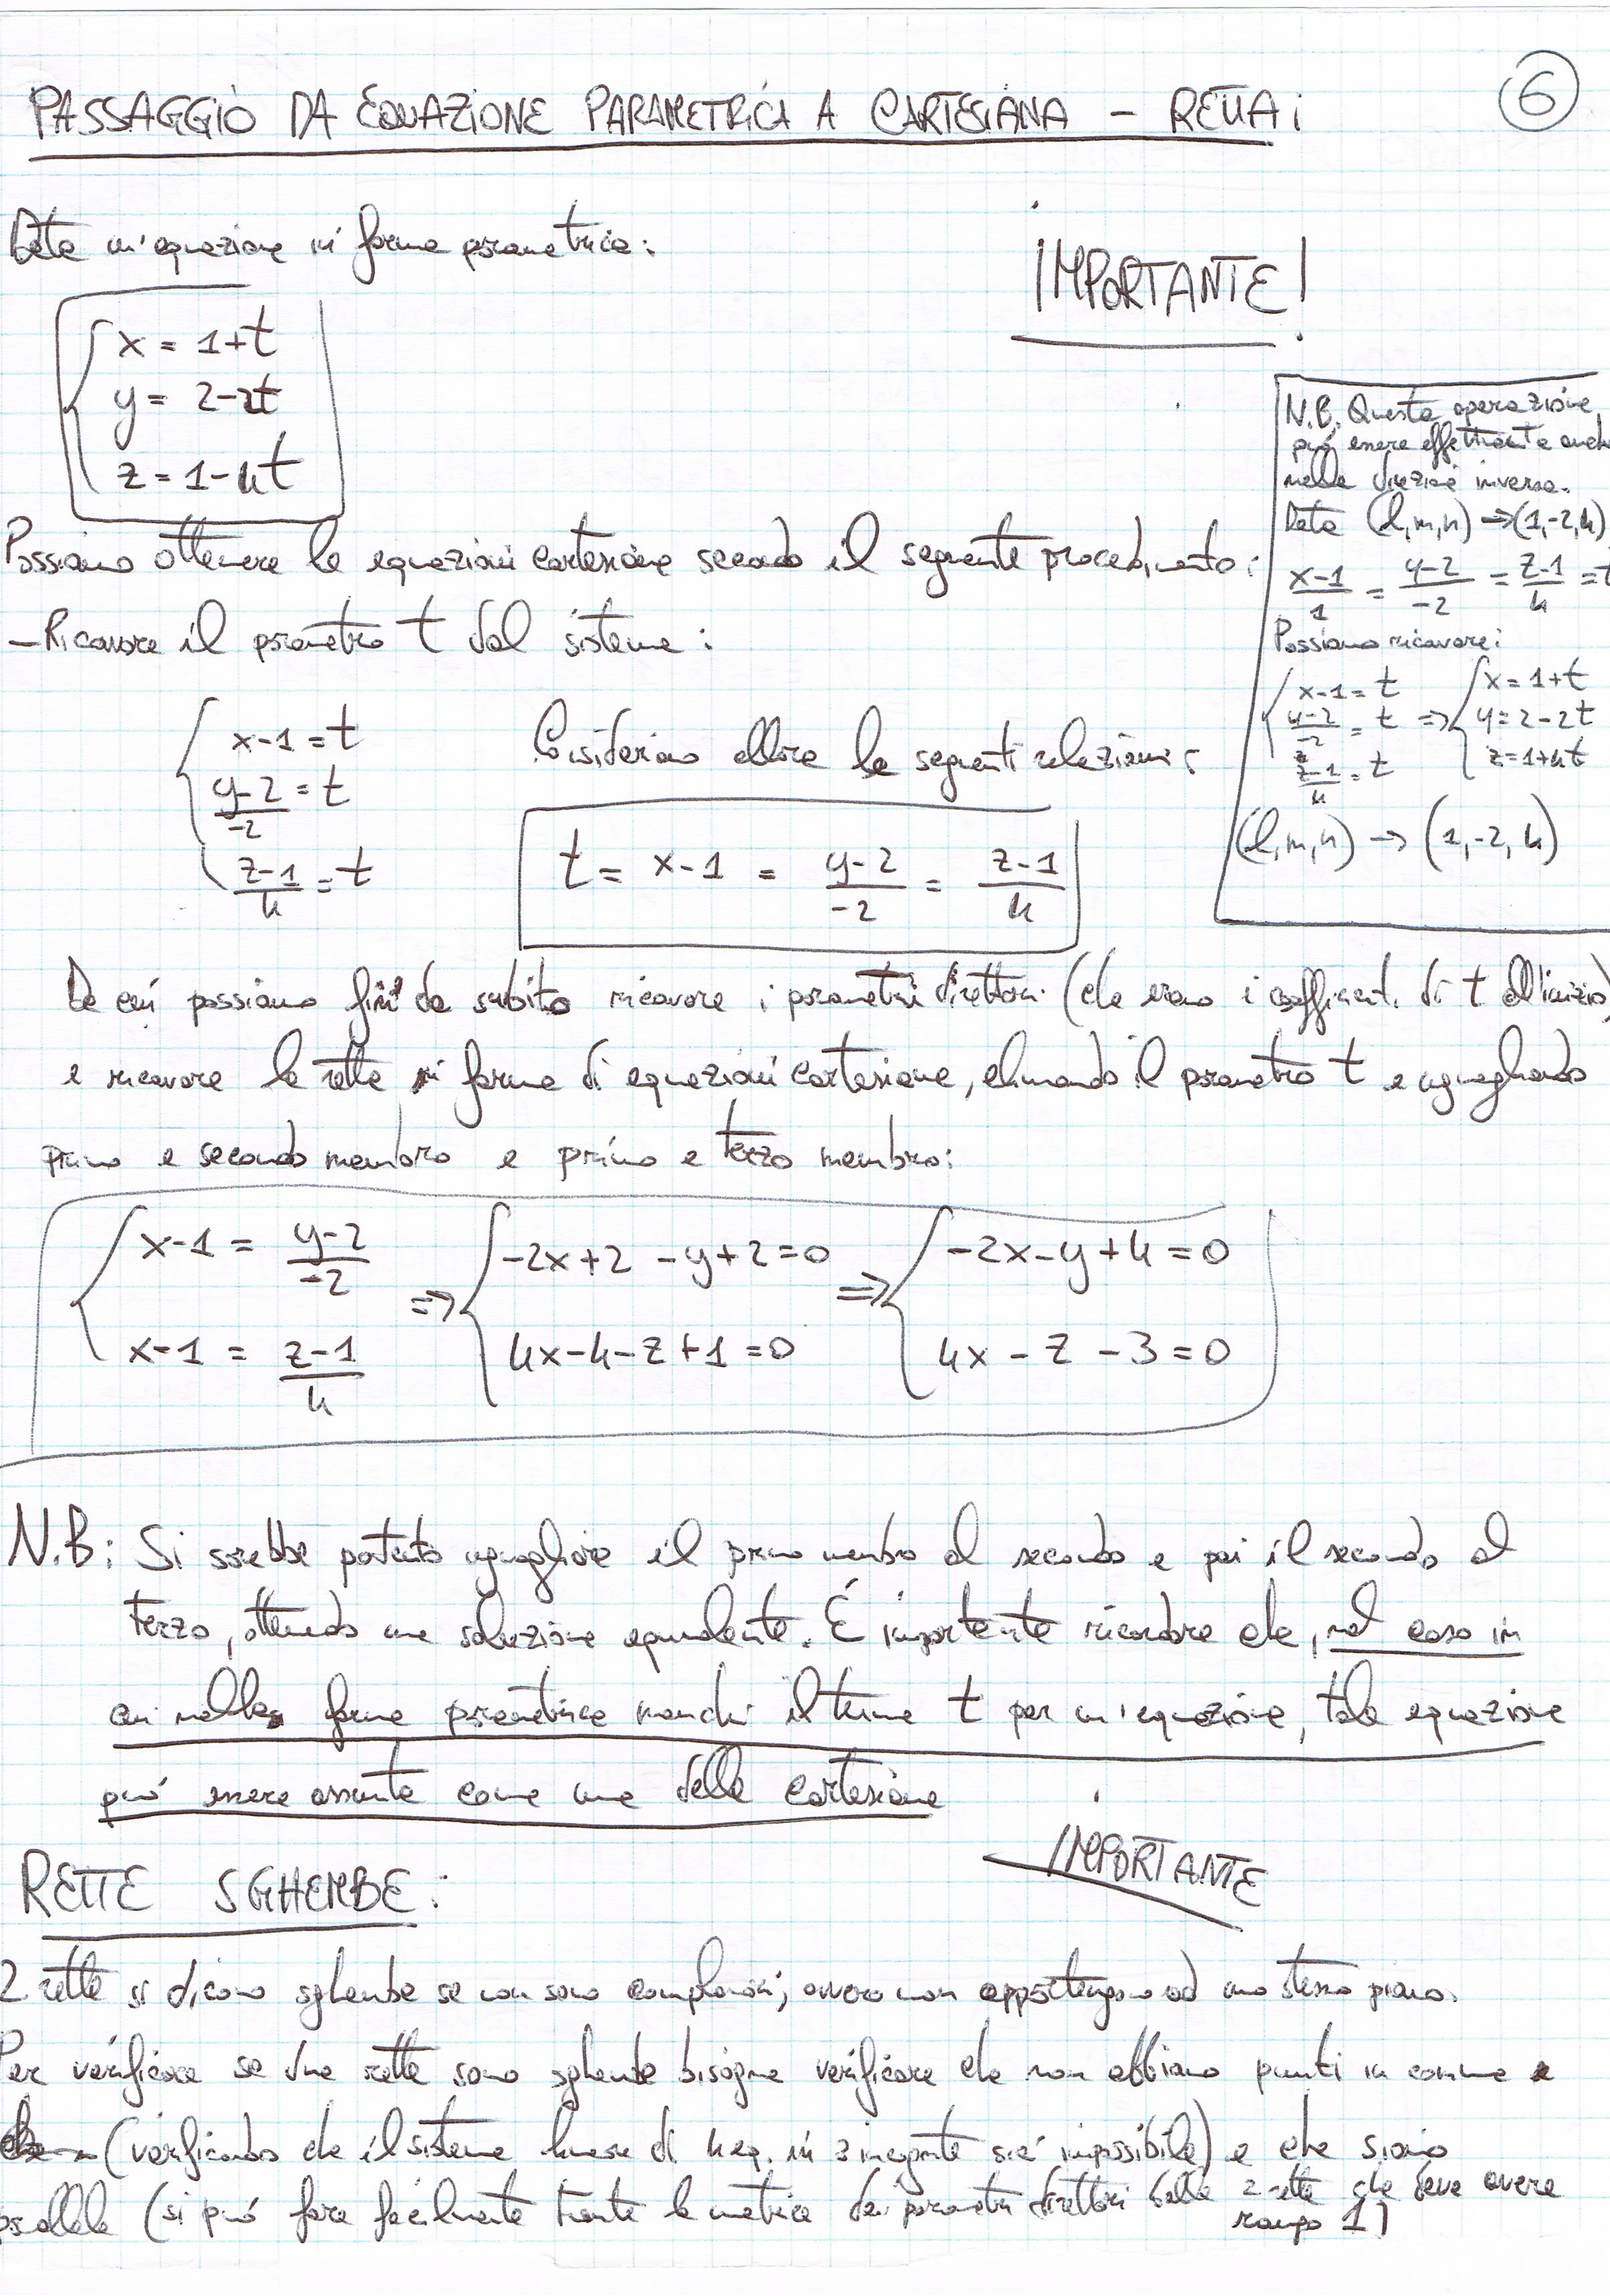 PASSAGGIO DA EQUAZIONE PARAMETRICA A CARTESIANA - RETTA i
6
Data un'equazione in forma parametrica:
IMPORTANTE!
x = 1+t
y = 2-2t
z = 1-4t
N.B. Questa operazione
può essere effettuata anche
nella direzione inversa.
Data (l,m,n) → (1,-2,4)
x-1/1 = y-2/-2 = z-1/4 = t
Possiamo ricavare:
x-1 = t
y-2/-2 = t
z-1/4 = t
⇒ x = 1+t
y = 2-2t
z = 1+4t
(l,m,n) → (1,-2,4)
Possiamo ottenere le equazioni cartesiane secondo il seguente procedimento:
- Ricavare il parametro t dal sistema:
x-1 = t
y-2/-2 = t
z-1/4 = t
Consideriamo allora le seguenti relazioni:
t = x-1 = y-2/-2 = z-1/4
Da cui possiamo fin da subito ricavare i parametri direttori (che erano i coefficienti di t all'inizio)
e ricavare la retta in forma di equazioni cartesiane, elimando il parametro t e uguagliando
primo e secondo membro e primo e terzo membro:
x-1 = y-2/-2
x-1 = z-1/4
⇒ -2x+2-y+2=0
4x-4-z+1=0
⇒ -2x-y+4=0
4x-z-3=0
N.B: Si sarebbe potuto uguagliare il primo membro al secondo e poi il secondo al
terzo, ottenendo una soluzione equivalente. É importante ricordare che, nel caso in
cui nella forma parametrica manchi il termine t per un'equazione, tale equazione
può essere assunta come una delle cartesiane
IMPORTANTE
RETTE SGHEMBE:
2 rette si dicono sghembe se non sono complanari, ovvero non appartengono ad uno stesso piano.
Per verificare se due rette sono sghembe bisogna verificare che non abbiano punti in comune e
(verificando che il sistema lineare di 4 eq. in 3 incognite sia impossibile) e che siano
parallele (si può fare facilmente tramite la matrice dei parametri direttori delle 2 rette che deve avere
rango 1)